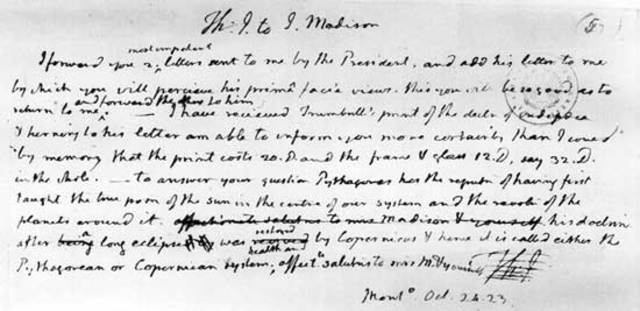 Th: J. to J. Madison (5)
most important
I forward you 2, letters sent to me by the President, and add his letter to me
by which you will percieve his primâ facie views. this you will be so good as to
and forward the others to him
return to me ^ — I have recieved Trumbull's print of the decln of independce
& turning to his letter am able to inform you more certainly than I could
by memory that the print costs 20. D. and the frame & glass 12. D. say 32. D.
in the whole. — to answer your question Pythagoras has the reputn of having first
taught the true posn of the sun in the centre of our system and the revoln of the
planets around it. affectionate salutns to mrs Madison & yourself his doctrine
restored
after a being long eclipse was revived by Copernicus & hence it is called either the
health and
Pythagorean or Copernican system; affectte salutns to mrs M. & yourself Th:J.
Monto Oct. 24. 23.